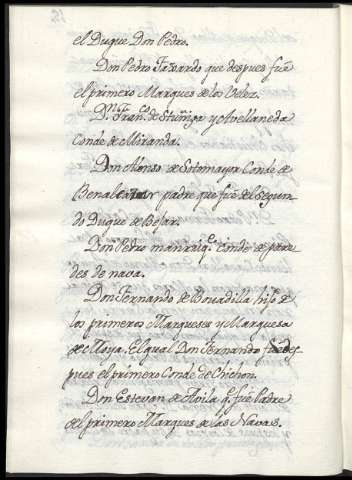 el Duque Don Pedro.
Don Pedro Faxardo que despues fué
el primero Marques de los Velez.
Dn. Franco. de Stuñiga y Avellaneda
Conde de Miranda.
Don Alonso de Sotomayor Conde de
Benalcazar padre que fué del Segun-
do Duque de Bejar.
Don Pedro manrriq. conde de pare
des de nava.
Don Fernando de Bovadilla hijo de
los primeros Marqueses y Marquesa
de Moya. El qual Don Fernando fué des-
pues el primero Conde de Chichon.
Don Estevan de Avila q. fué Padre
del primero Marques de las Navas.